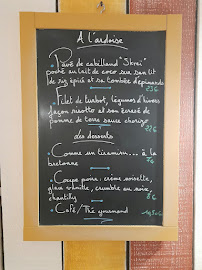 A l'ardoise
• Pavé de cabillaud "Skrei"
poché au lait de coco sur son lit
de riz épicé et sa tombée d'épinards
23€
• Filet de turbot, légumes d'hiver
façon risotto et son écrasé de
pomme de terre sauce chorizo
22€
des desserts
• Comme un tiramisu... à la
bretonne
7€
• Coupe poire : crème noisette,
glace vanille, crumble au noix,
chantilly
8€
• Café/Thé gourmand